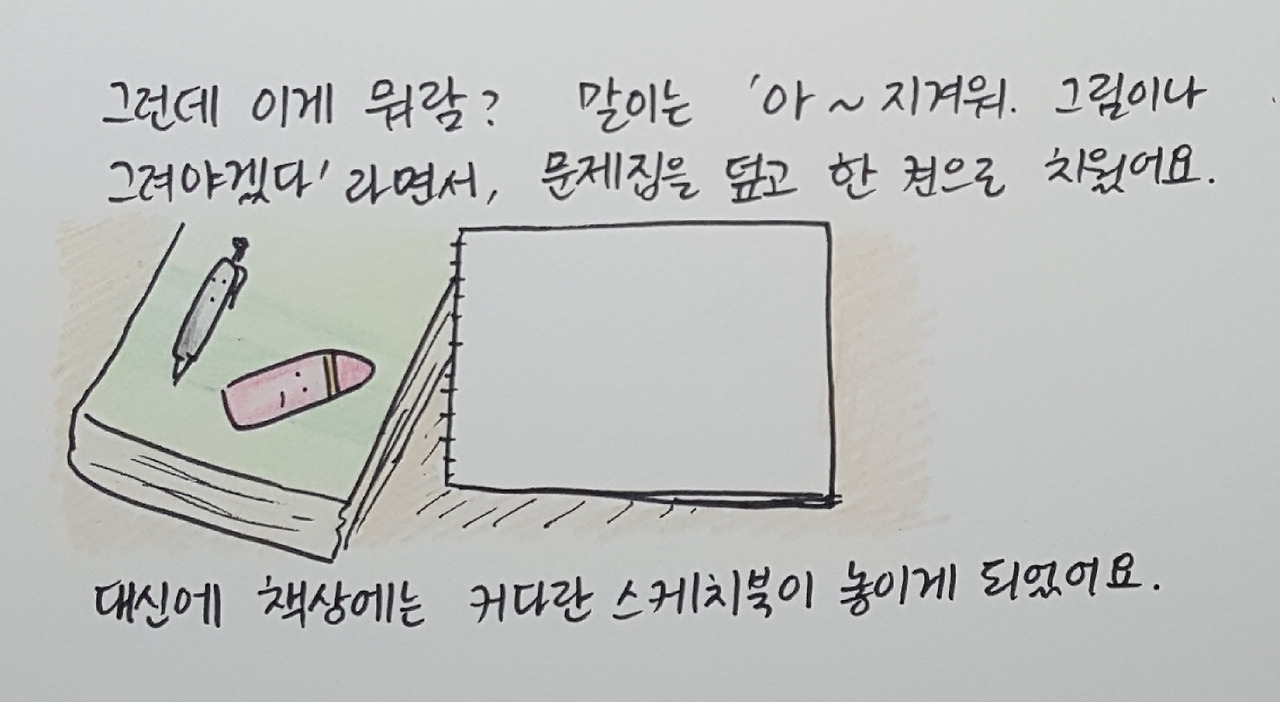 그런데 이게 뭐람? 말이는 '아~지겨워. 그림이나
그려야겠다'라면서, 문제집을 덮고 한 켠으로 치웠어요.
대신에 책상에는 커다란 스케치북이 놓이게 되었어요.